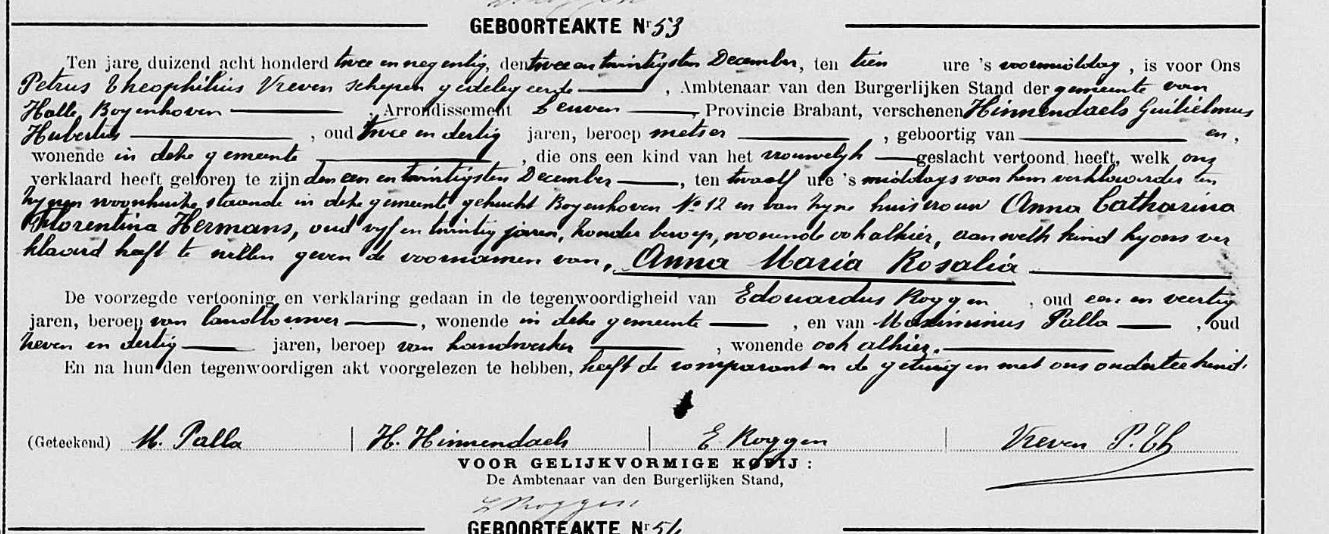 GEBOORTEAKTE Nr 53
Ten jare duizend acht honderd twee en negentig, den twee en twintigsten December, ten tien ure 's voormiddag, is voor Ons
Petrus Theophilius Vreven schepen gedelegeerde, Ambtenaar van den Burgerlijken Stand der gemeente van
Halle Boyenhoven Arrondissement Leuven Provincie Brabant, verschenen Hinnendaels Guilielmus
Hubertus, oud twee en dertig jaren, beroep metser, geboortig van en,
wonende in deze gemeente, die ons een kind van het vrouwelyk geslacht vertoond heeft, welk ons
verklaard heeft geboren te zijn den een en twintigsten December, ten twaalf ure 's middags van hem verklaarder ten
zynen woonhuize, staande in deze gemeente gehucht Boyenhoven No 12 en van zyne huisvrouw Anna Catharina
Florentina Hermans, oud vyf en twintig jaren, zonder beroep, wonende ook alhier, aan welk kind hy ons ver
klaard heeft te willen geven de voornamen van, Anna Maria Rosalia
De voorzegde vertooning en verklaring gedaan in de tegenwoordigheid van Edouardus Roggen, oud een en veertig
jaren, beroep van landbouwer, wonende in deze gemeente, en van Maximinus Palla, oud
zeven en dertig jaren, beroep van handwerker, wonende ook alhier.
En na hun den tegenwoordigen akt voorgelezen te hebben, heeft de comparant en de getuigen met ons onderteekend.
(Geteekend) M. Palla | H. Hinnendaels | E Roggen | Vreven P. Th
VOOR GELIJKVORMIGE KOPIJ :
De Ambtenaar van den Burgerlijken Stand,
Roggen
GEBOORTEAKTE Nr 54